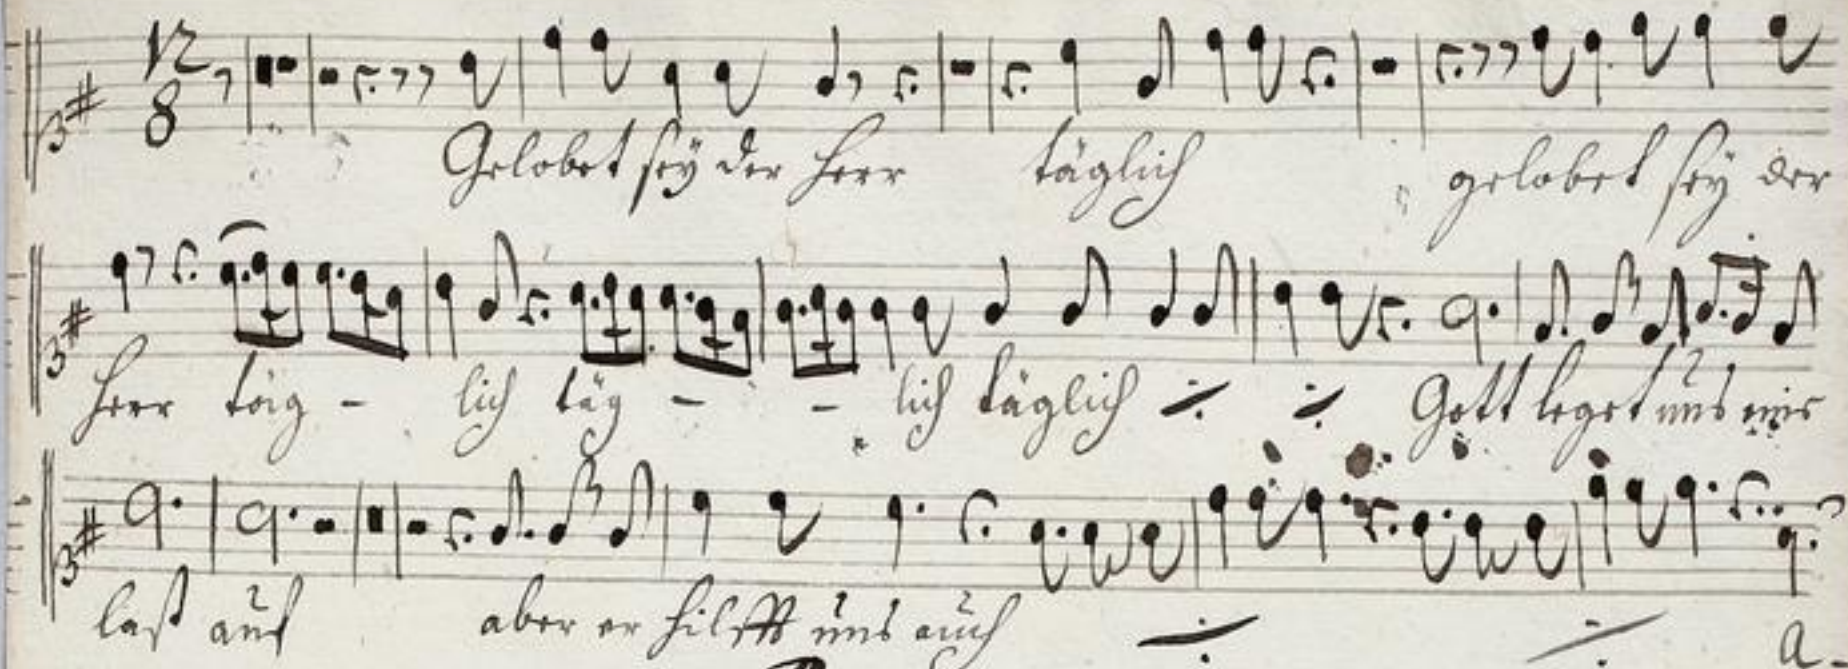 12
8
Gelobet seÿ der Herr täglich gelobet seÿ der
Herr täg - lich täg - - lich täglich ·/· ·/· Gott leget uns eine
last auf aber er hilfft uns auch ·/· ·/· a